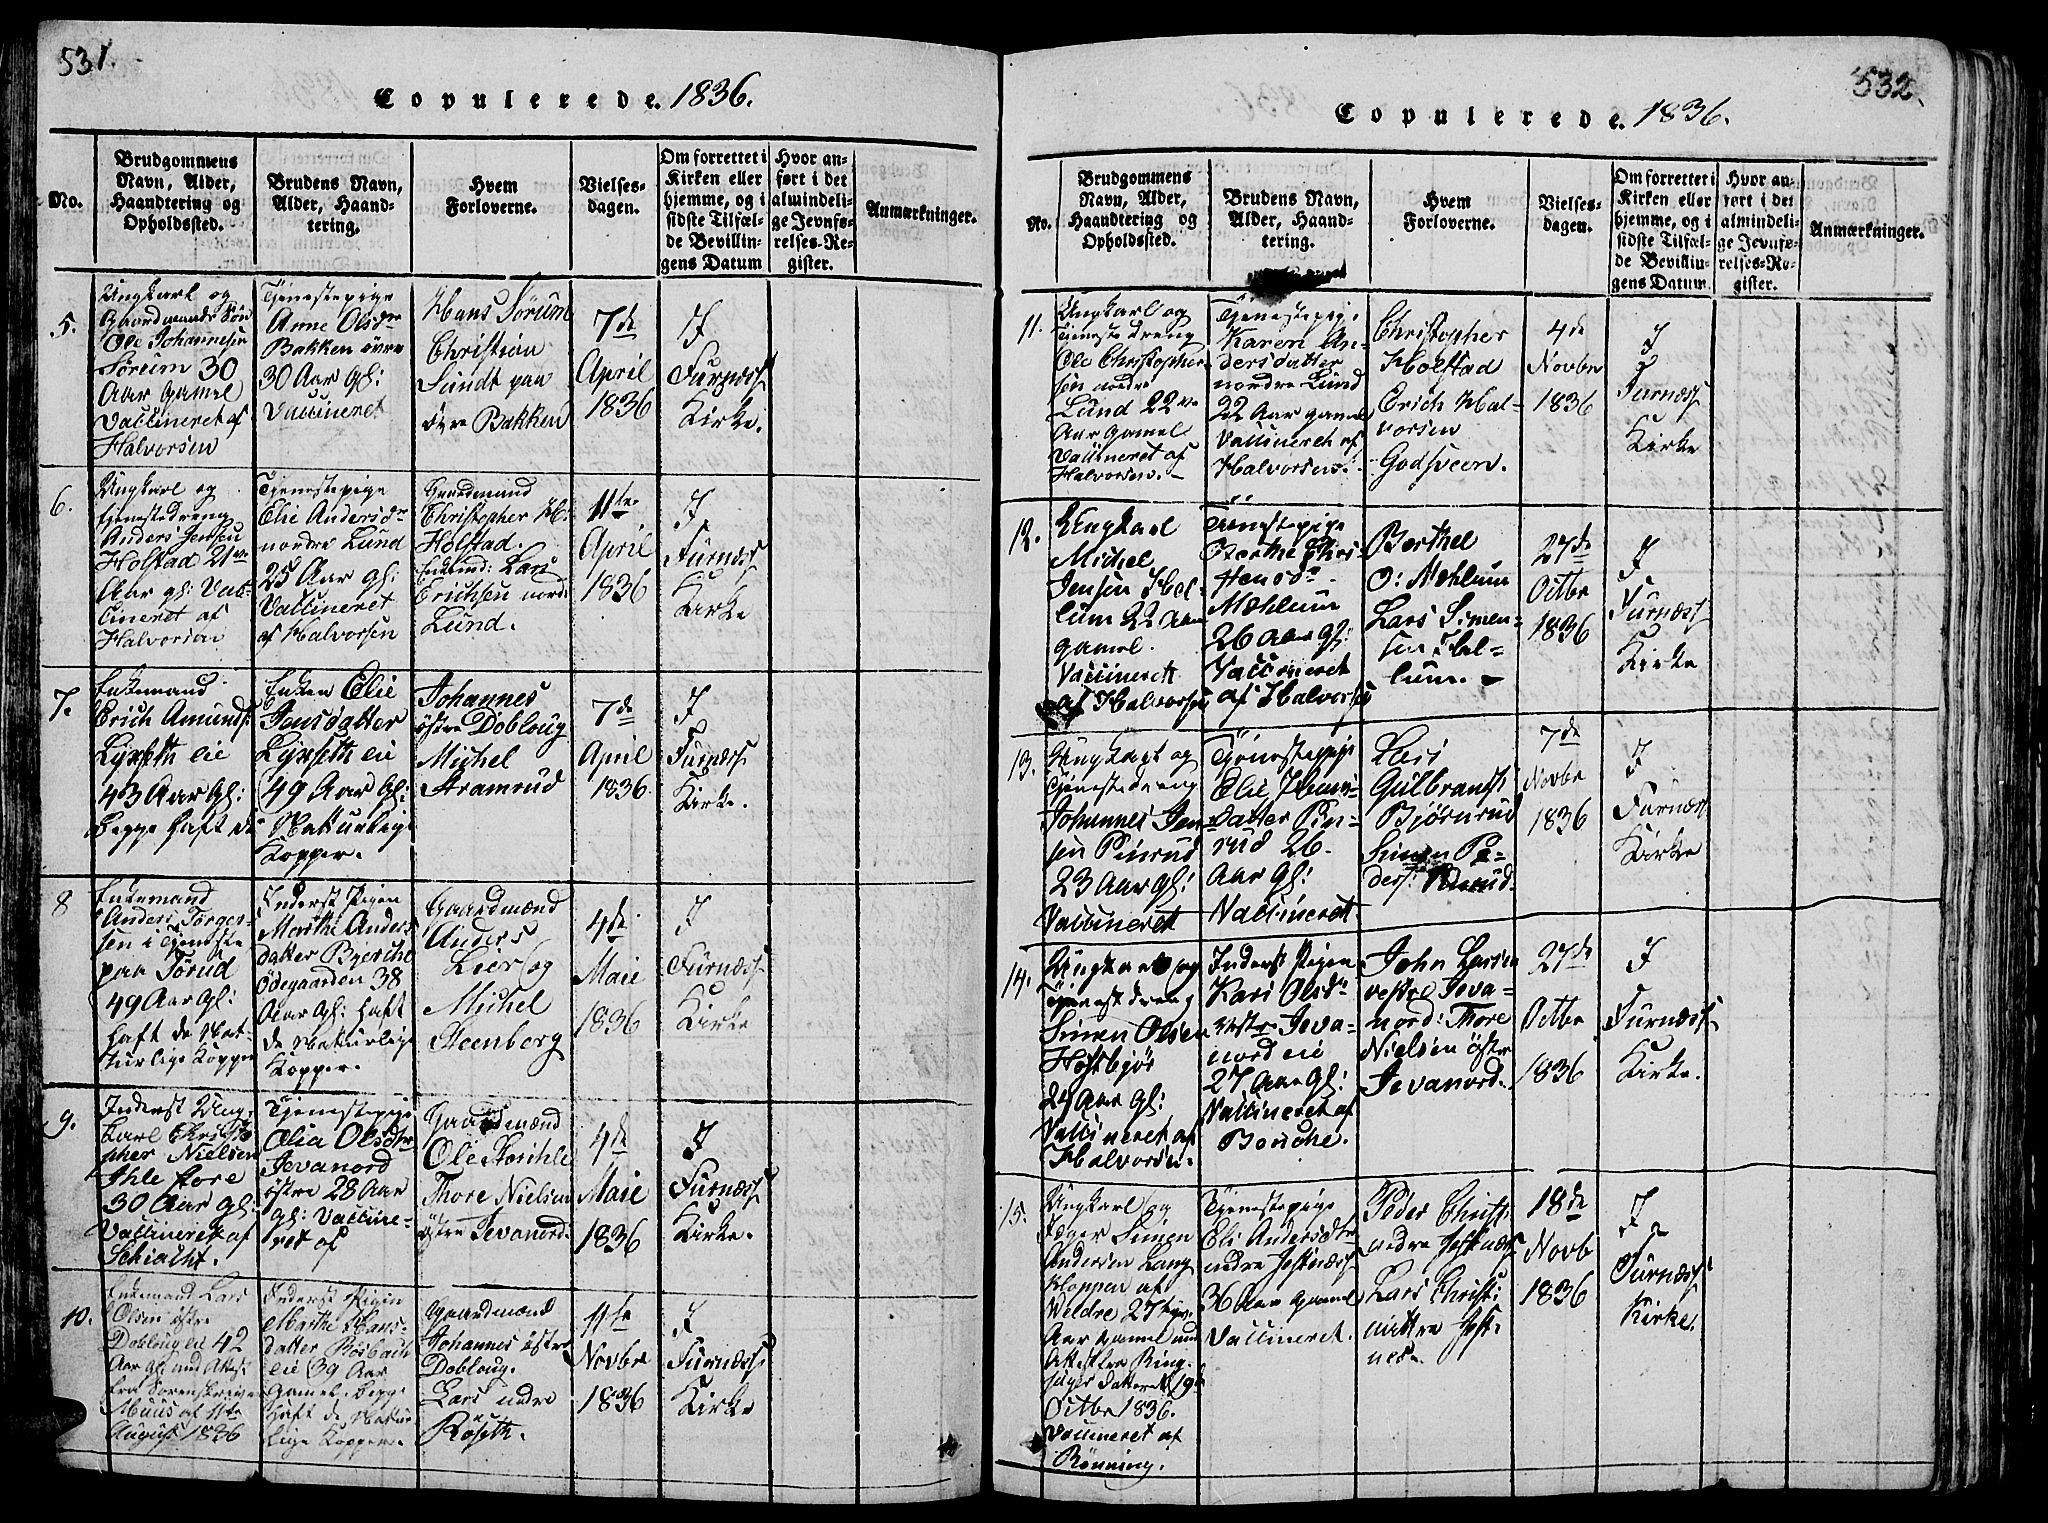 531.
Copulerede. 1836.
No.
Brudgommens
Navn, Alder,
Haandtering og
Opholdssted.
Brudens Navn,
Alder, Haand-
tering.
Hvem
Forloverne.
Vielses-
dagen.
Om forrettet i
Kirken eller
hjemme, og i
sidste Tilfæl-
de Bevillin-
gens Datum
Hvor an-
ført i det
almindeli-
ge Jevnfø-
relses-Re-
gister.
Anmærkninger.
5.
Ungkarl og
Gaardmands Søn
Ole Johannesen
Sørum 30
Aar gamel
Vaccineret af
Halvorsen
Tjenestepige
Anne Olsdr
Bakken övre
30 Aar gl:
Vaccineret
Hans Sørum
Christian
Sundt paa
övre Bakken
7de
April
1836
I
Furnæss
Kirke.
6.
Ungkarl og
tjenestedreng
Anders Jensen
Holstad 21ve
Aar gl: Vac-
cineret af
Halvorsen
Tjenestepige
Elie Andersdr
nordre Lund
25 Aar gl:
Vaccineret
af Halvorsen
Gaardmand
Christopher H.
Holstad.
Enkemd: Lars
Erichsen nord:
Lund.
11te
April
1836
I
Furnæss
Kirke
7.
Enkemand
Erich Amunds:
Lyseth eie
43 Aar Gl:
begge haft de
Enken Elie
Jensdatter
Lyseth eie
49 Aar Gl:
Naturlige
Kopper.
Johannes
östre Dobloug
Michel
Aramrud
7de
April
1836
I
Furnæss
Kirke.
8
Enkemand
Anders Torger-
sen i Tjeneste
paa Törud
49 Aar Gl:
haft de Nat-
turlige Kopper
Inderst Pigen
Marthe Anders
datter Bjerche
Ödegaarden 38
Aar Gl: haft
de Naturlige
Kopper.
Gaardmænd
Anders
Lier og
Michel
Steenberg
4de
Maie
1836
I
Furnæss
Kirke
9.
Inderst Ung-
karl Christo
pher Nielsen
Ihle store
30 Aar gl:
Vaccineret af
Schiacht.
Tjenestepige
Ælia Olsdtr
Jevanord
östre 28 Aar
gl: Vaccine-
ret af
Gaardmænd
Ole Storihle
Thore Nielsen
östre Jevanord.
4de
Maie
1836
I
Furnæss
Kirke.
10.
Enkemand Lars
Olsen östre
Doblougeie 42
Aar gl: med Attest
fra Sorenskriver
Muus af 11te
August 1836
Inderst Pigen
Marthe Hans-
datter Rosbach
eie 39 Aar
Gamel. begge
haft de Natur
lige Kopper.
Gaardmænd
Johannes östre
Dobloug.
Lars nedre
Röseth.
11te
Novbr
1836
I
Furnæss
Kirke
532.
Copulerede. 1836.
No.
Brudgommens
Navn, Alder,
Haandtering og
Opholdssted.
Brudens Navn,
Alder, Haand-
tering.
Hvem
Forloverne.
Vielses-
dagen.
Om forrettet i
Kirken eller
hjemme, og i
sidste Tilfæl-
de Bevillin-
gens Datum
Hvor an-
ført i det
almindeli-
ge Jevnfø-
relses-Re-
gister.
Anmærkninger.
11.
Ungkarl og
Tjenestedreng
Ole Christopher
sen nedre
Lund 22ve
Aar gamel
Vaccineret af
Halvorsen.
Tjenestepige
Karen An-
dersdatter
nordre Lund
22 Aar gamel
Vaccineret af
Halvorsen.
Christopher
Holstad
Erich Hal-
vorsen
Godsveen.
4de
Novbr
1836
I
Furnæss
Kirke
12.
Ungkarl
Michel
Jensen Hel-
lum 22 Aar
gamel.
Vaccinerett
af Halvorsen
Tienestepige
Berthe Chris-
tiensdr
Mæhlum
26 Aar Gl:
Vaccineret
af Halvorsen
Berthel
O: Mæhlum
Lars Simen-
sen Hel-
lum.
27de
Octbr
1836
I
Furnæss
Kirke
13.
Ungkarl og
Tjenestedreng
Johannes Jen-
sen Pinrud
23 Aar gl:
Vaccineret
Tjenestepige
Elie
datter Pin-
rud 26
Aar gl:
Vaccineret.
Lars
Gulbrands
Björnrud
Simen Pe-
ders:
7de
Novbr
1836
I
Furnæss
Kirke
14.
Ungkarl og
Tjenestdreng
Simen Olsen
Hostbjör
24 Aar gl:
Vaccineret af
Halvorsen.
Inderst Pigen
Kari Olsdr
vestre Jeva-
nord eie
27 Aar Gl:
Vaccineret af
Borche.
John Larsen
vestre Jeva-
nord: Thore
Nielsen östre
Jevanord.
27de
Octbr
1836
I
Furnæss
Kirke.
15.
Ungkarl og
Jæger Simen
Andersen Lang
kloppen af
Veldre 27
Aar gamel med
Attest fra Ring-
sager datert 19
Octbr 1836.
Vaccineret af
Rönning.
Tjenestepige
Eli Andersdtr
nedre Jestnæss
36 Aar gamel
Vaccineret.
Peder Christ:
nedre Jestnæss
Lars Christ:
mittre Jest-
nes.
18de
Novb
1836
I
Furnæss
Kirke.